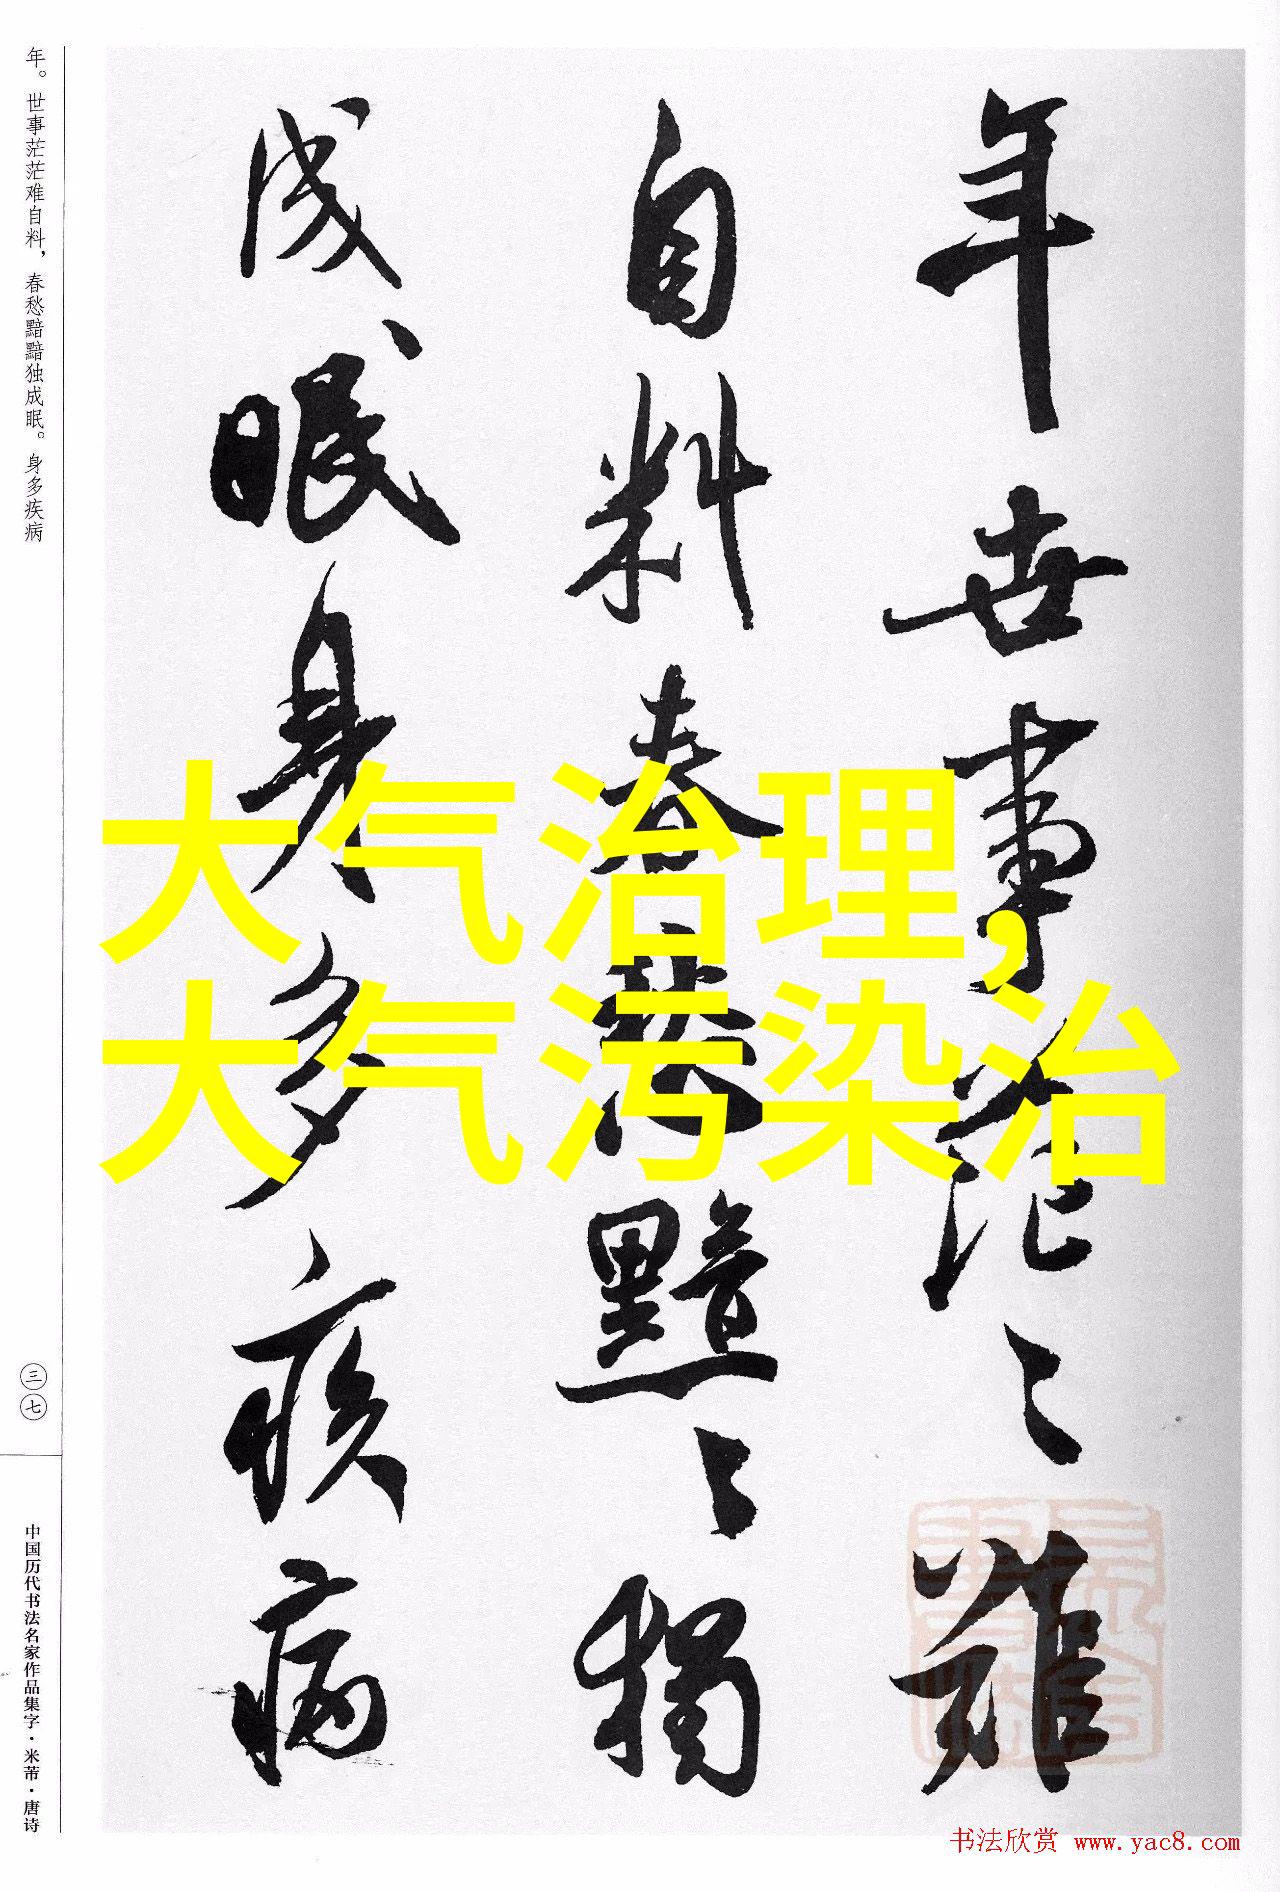 年世事茫〻难
自料春愁黯〻獨
成眠身多疾病
年。世事茫茫难自料，春愁黯黯独成眠。身多疾病
三七
中国历代书法名家作品集字·米芾·唐诗
大气治理，
大气污染治
书法欣赏 www.yac8.com